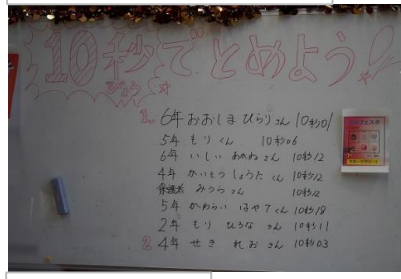 10秒でとめよう!
びょう
1. 6年 おおしま ひらり さん 10秒01
5年 もり くん 10秒06
6年 いしい あかね さん 10秒12
4年 かいとう しょうた くん 10秒12
保護者 みうら さん 10秒12
5年 かわらい はやて くん 10秒18
2年 もり ひろな さん 10秒11
2. 4年 せき れお さん 10秒03